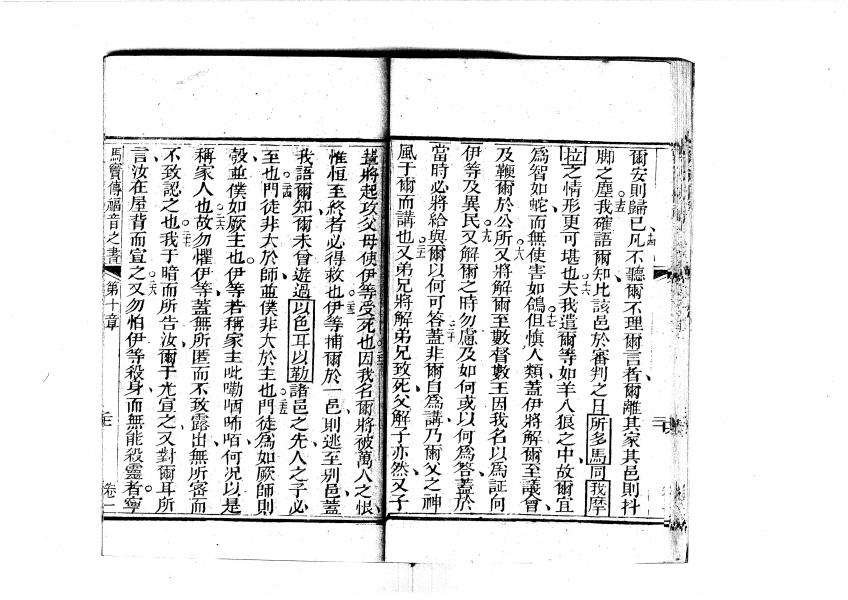 爾安則歸已 十四 凡不聽爾不理爾言者爾離其家其邑則抖
脚之塵 十五 我確語爾知比該邑於審判之日所多馬同我摩
拉之情形更可堪也 十六 夫我遣爾等如羊入狼之中故爾宜
爲智如蛇而無使害如鴿 十七 但慎人類蓋伊將解爾至議會
及鞭爾於公所 十八 又將解爾至數督數王因我名以爲証向
伊等及異民 十九 又解爾之時勿慮及如何或以何爲答蓋於
當時必將給與爾以何可答 二十 蓋非爾自爲講乃爾父之神
風于爾而講也 二一 又弟兄將解弟兄致死父解子亦然又子
輩將起攻父母使伊等受死也 二二 因我名爾將被萬人之恨
惟恒至終者必得救也 二三 伊等捕爾於一邑則逃至别邑蓋
我語爾知爾未曾遊過以色耳以勒諸邑之先人之子必
至也 二四 門徒非大於師並僕非大於主也 二五 門徒爲如厥師則
彀並僕如厥主也伊等若稱家主呲嘞咽咘咟何况以是
稱家人也 二六 故勿懼伊等蓋無所匿而不致露出無所密而
不致認之也 二七 我于暗而所告汝爾於光宣之又對爾耳所
言汝在屋背而宣之 二八 又勿怕伊等殺身而無能殺靈者寧
馬竇傳福音之書 第十章 卷一